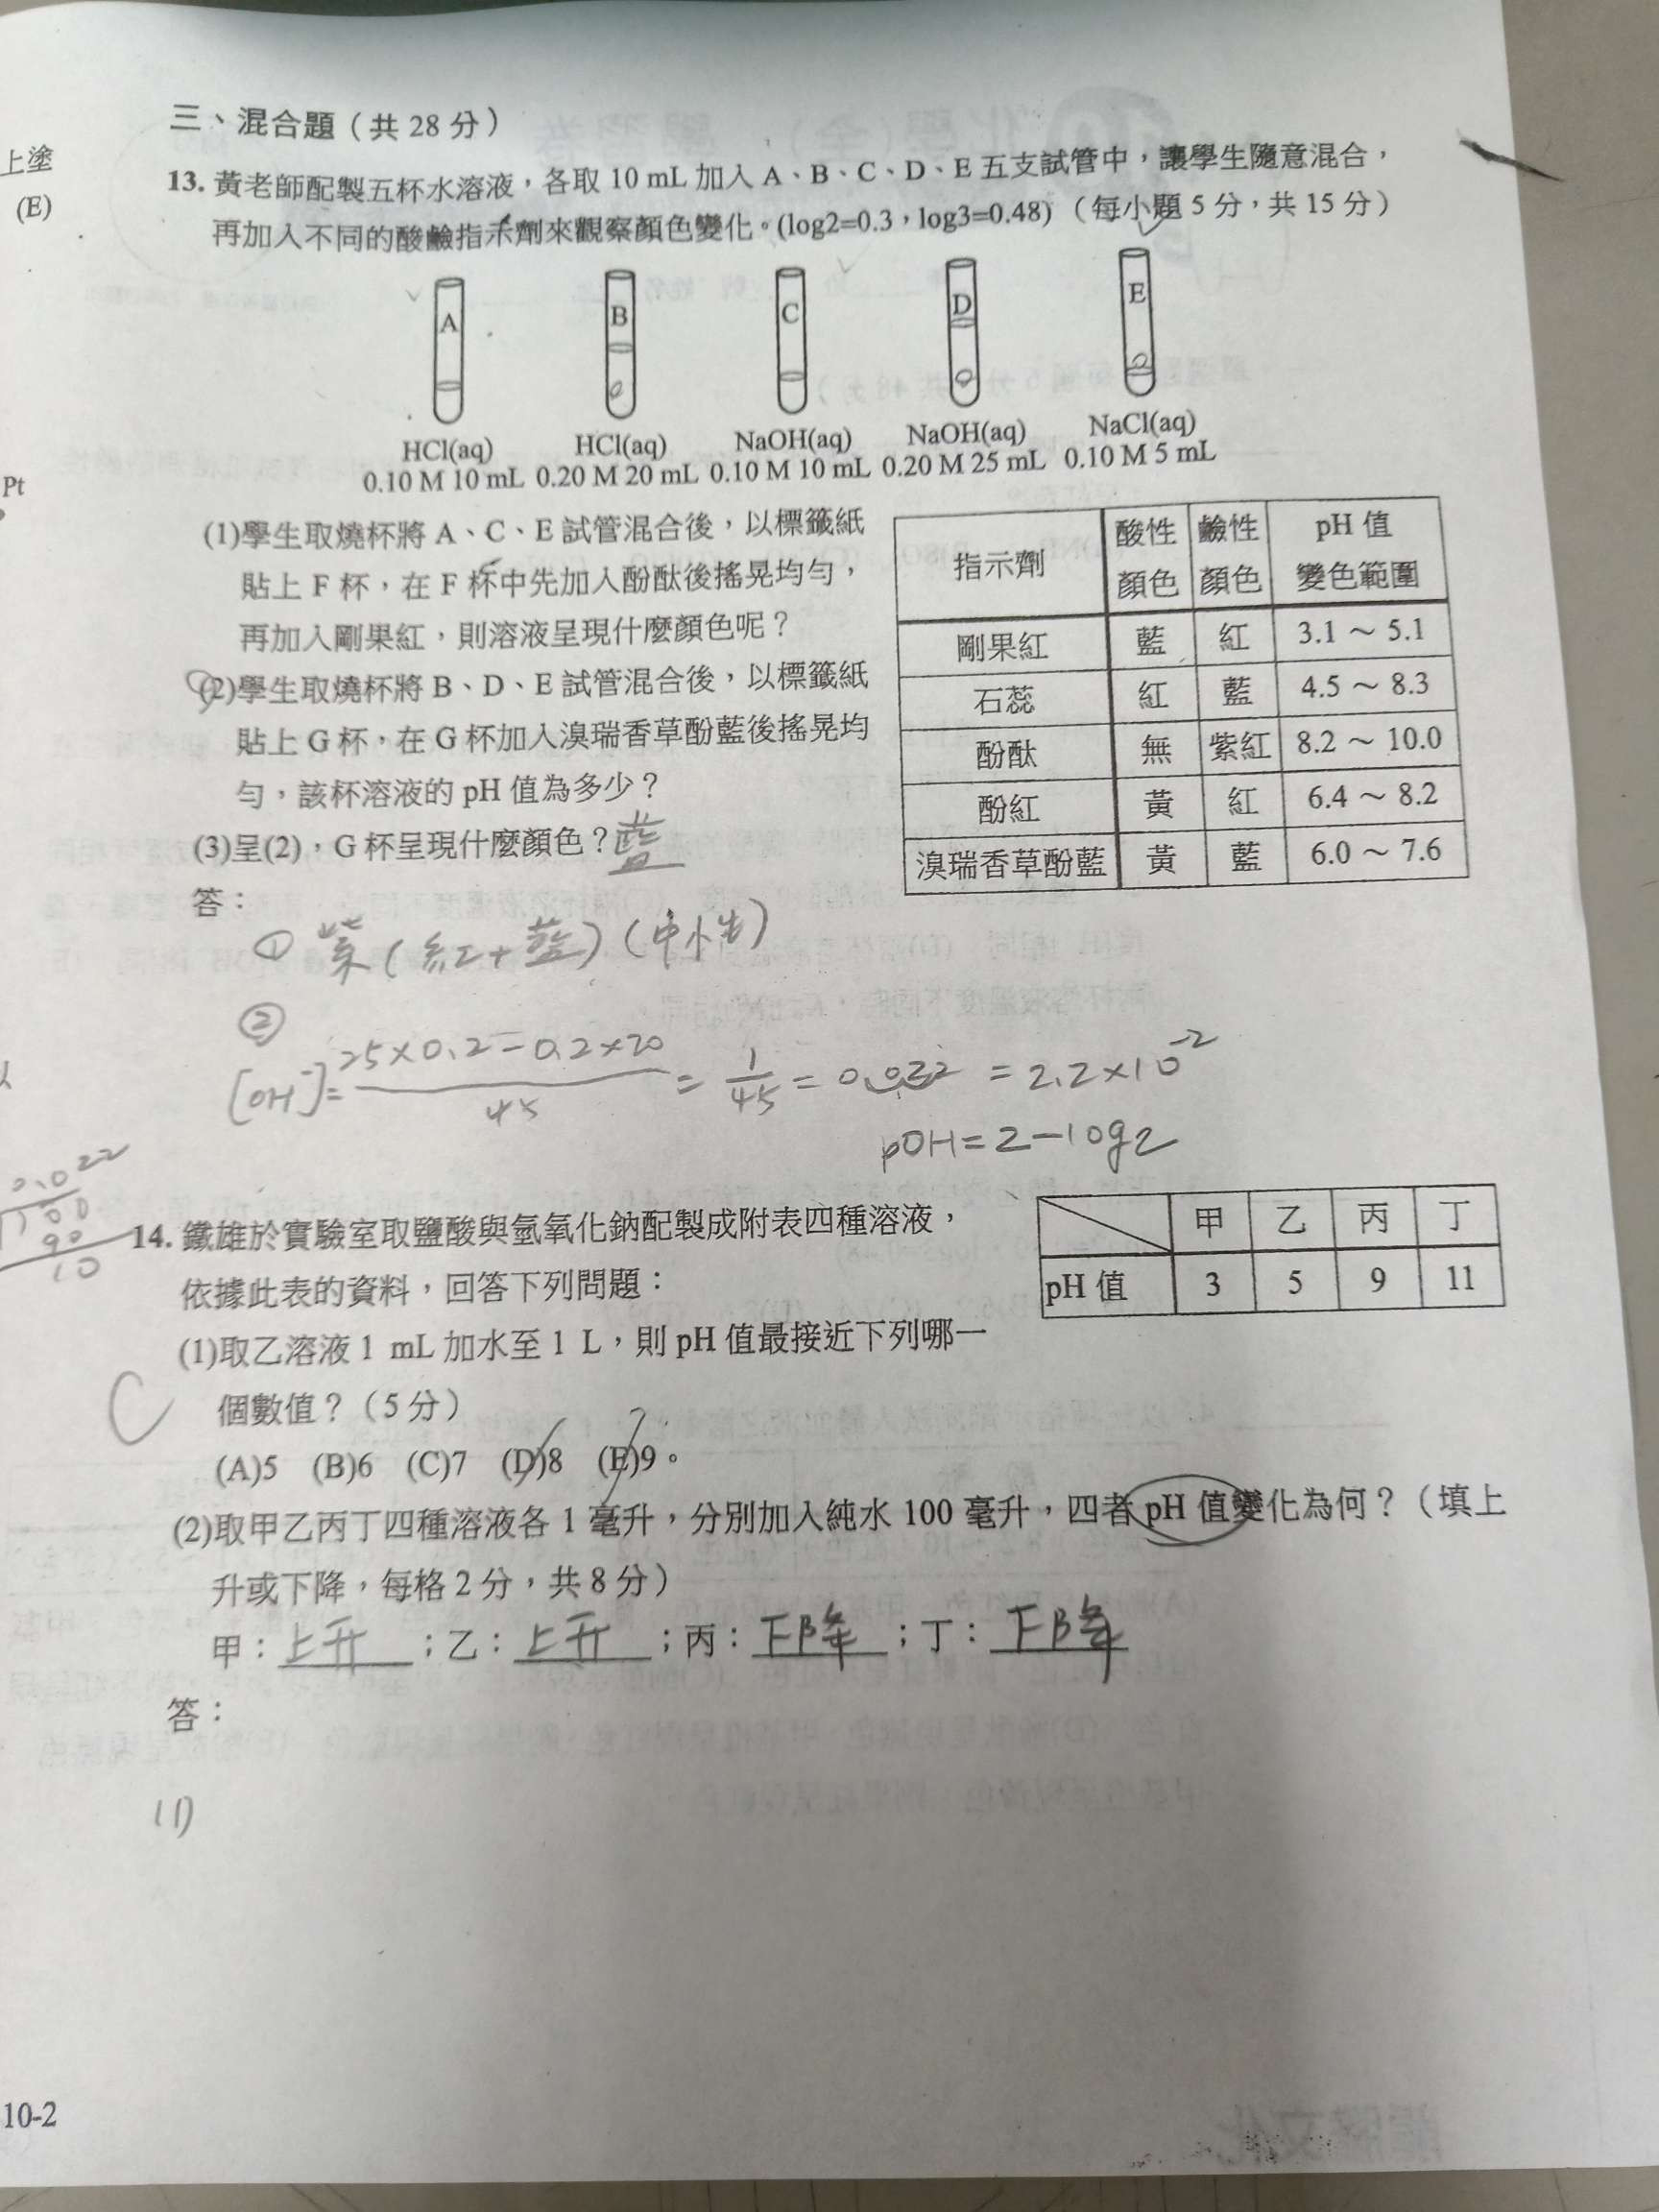 三、混合題（共 28 分）
上塗
(E)
13. 黃老師配製五杯水溶液，各取 10 mL 加入 A、B、C、D、E 五支試管中，讓學生隨意混合，
再加入不同的酸鹼指示劑來觀察顏色變化。(log2=0.3，log3=0.48)（每小題 5 分，共 15 分）
A B C D E
HCl(aq) HCl(aq) NaOH(aq) NaOH(aq) NaCl(aq)
0.10 M 10 mL 0.20 M 20 mL 0.10 M 10 mL 0.20 M 25 mL 0.10 M 5 mL
Pt
(1)學生取燒杯將 A、C、E 試管混合後，以標籤紙
貼上 F 杯，在 F 杯中先加入酚酞後搖晃均勻，
再加入剛果紅，則溶液呈現什麼顏色呢？
(2)學生取燒杯將 B、D、E 試管混合後，以標籤紙
貼上 G 杯，在 G 杯加入溴瑞香草酚藍後搖晃均
勻，該杯溶液的 pH 值為多少？
(3)呈(2)，G 杯呈現什麼顏色？藍
指示劑 酸性顏色 鹼性顏色 pH 值變色範圍
剛果紅 藍 紅 3.1～5.1
石蕊 紅 藍 4.5～8.3
酚酞 無 紫紅 8.2～10.0
酚紅 黃 紅 6.4～8.2
溴瑞香草酚藍 黃 藍 6.0～7.6
答：
① 紫(紅+藍)(中性)
②
[OH⁻]= 25×0.2-0.2×20 / 45 = 1/45 = 0.022 = 2.2×10⁻²
pOH=2-log2
0.022
100
90
10
14. 鐵雄於實驗室取鹽酸與氫氧化鈉配製成附表四種溶液，
依據此表的資料，回答下列問題：
甲 乙 丙 丁
pH 值 3 5 9 11
(1)取乙溶液 1 mL 加水至 1 L，則 pH 值最接近下列哪一
個數值？（5 分）
C
(A)5 (B)6 (C)7 (D)8 (E)9。
(2)取甲乙丙丁四種溶液各 1 毫升，分別加入純水 100 毫升，四者 pH 值變化為何？（填上
升或下降，每格 2 分，共 8 分）
甲：上升；乙：上升；丙：下降；丁：下降
答：
(1)
10-2